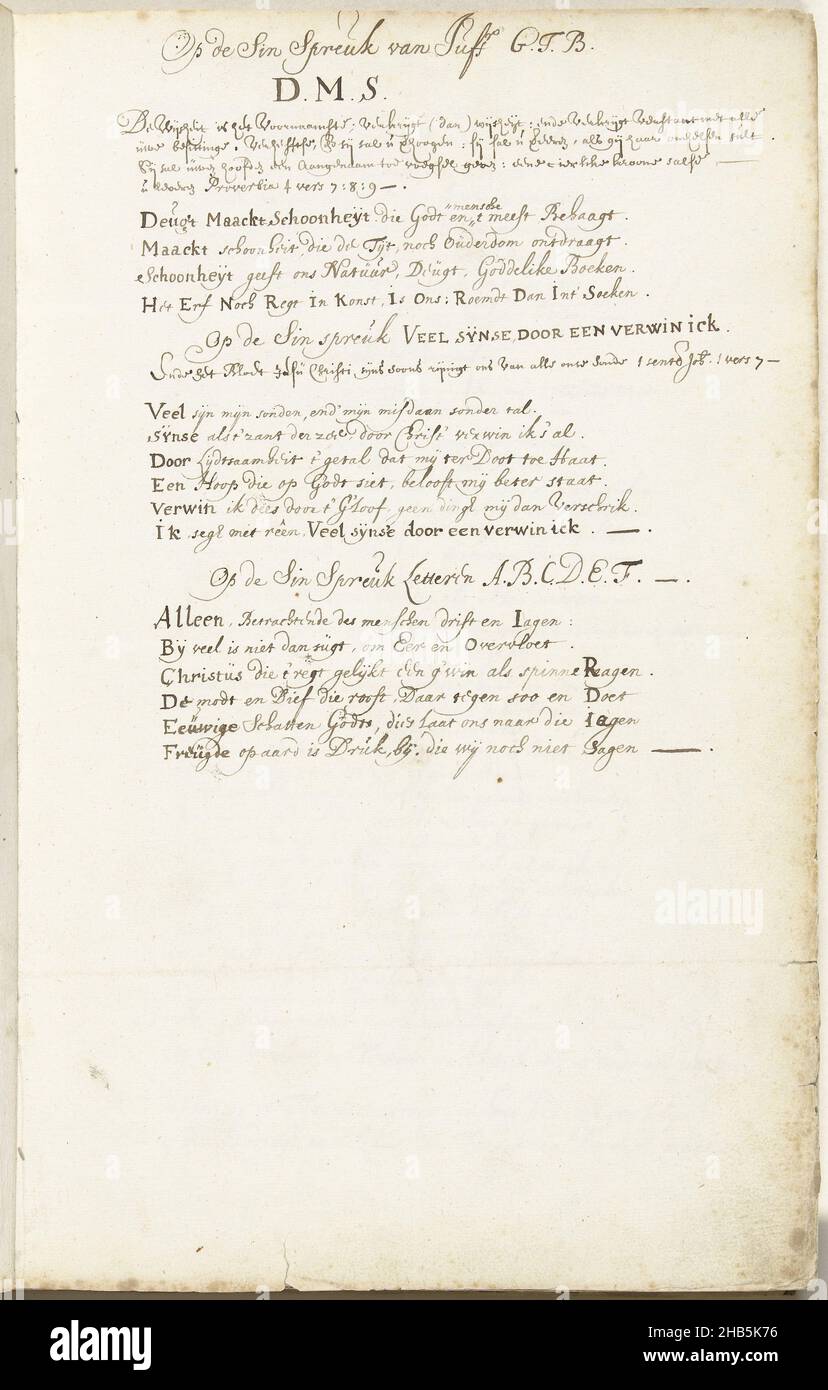 Op de Sin Spreuk van Juff G.T.B.
D.M.S.
De Wijsheit is het Voornaamste; Verkrijgt (dan) wijsheyt: ende Verkrijgt Verstant met alle
uwe besittinge. Verheftse, En sij sal u verhoogen: sij sal u Eeren, als gij haar omhelsen sult.
Sij sal uwen hoofde een Aangenaam toe voegsel geven: eene cierlike kroone salse
u leveren Proverbia 4 vers 7:8:9 —.
mensche
Deugt Maackt Schoonheyt die Godt en 't meest Behaagt.
Maackt schoonheit, die de Tyt, noch Ouderdom ontdraagt.
Schoonheyt geeft ons Natuur, Deugt, Goddelike Boeken.
Het Erf Noch Regt In Konst, Is Ons; Roemdt Dan Int Soeken.
Op de Sin spreuk VEEL SYNSE, DOOR EEN VERWIN ick.
Ende het Bloet Jesu Christi sijns soons rijnigt ons van alle onse sonde 1 sentb Joh. 1 vers 7 —
Veel syn mijn sonden, end' mijn misdaan sonder tal.
Synse als t' zant der zee, door Christ' verwin ik 's al.
Door Lydtsaamheit t' getal dat my ter Doot toe Haat.
Een Hoop die op Godt siet, belooft my beter staat.
Verwin ik dees door t' G'loof, geen dingk my dan Verschrik.
Ik segk met reên, Veel synse door een verwin ick. —.
Op de Sin Spreuk Letteren A.B.C.D.E.F. —.
Alleen, Betrachtende des menschen drift en Iagen:
By veel is niet dan sugt, om Eer en Overvloet.
Christus die t' regt gelijkt een g'win als spinne Raagen.
De modt en Dief die rooft, Daar tegen soo en Doet
Eeuwige Schatten Godts, dies laat ons naar die Iagen
Freugde op aard is Druk, by die wij noch niet Sagen —.
alamy
Image ID: 2HB5K76
www.alamy.com